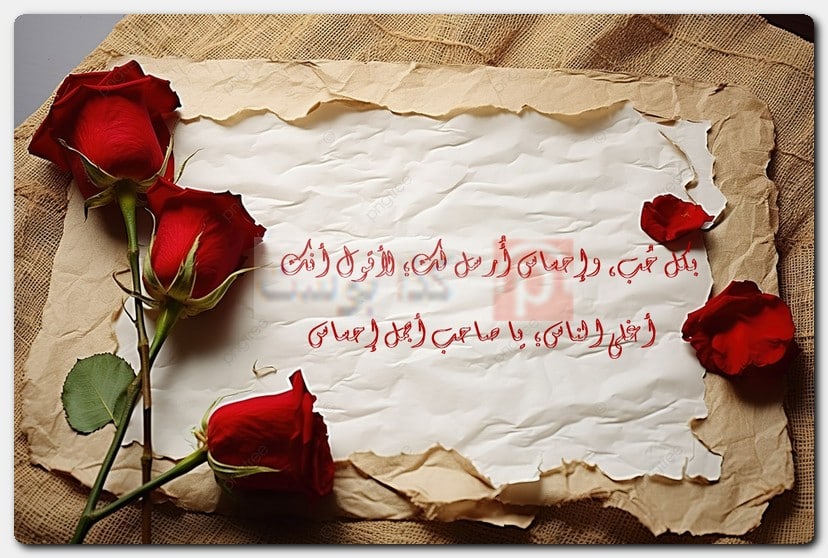 بكل حُب، وإحساس أُرسل لك؛ لأقول أنك
أغلى الناس؛ يا صاحب أجمل إحساس
pngtree